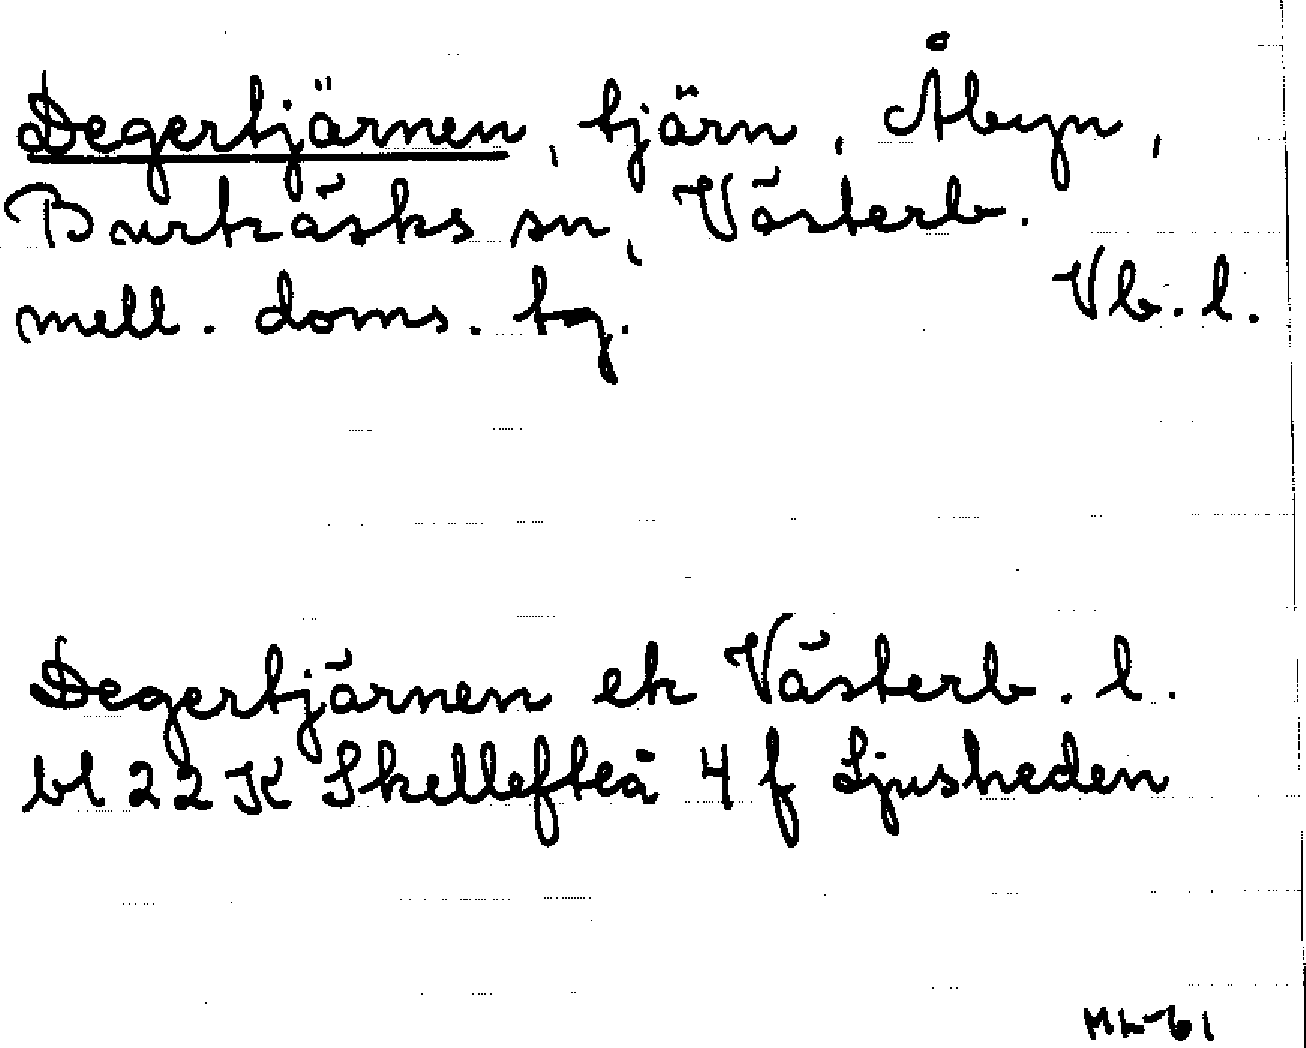 Degertjärnen, tjärn, Åbyn,
Burträsks sn, Västerb.
mell. doms. tg.
Vb. l.
Degertjärnen ek Västerb. l.
bl 22K Skellefteå 4 f Ljusheden
ML-61